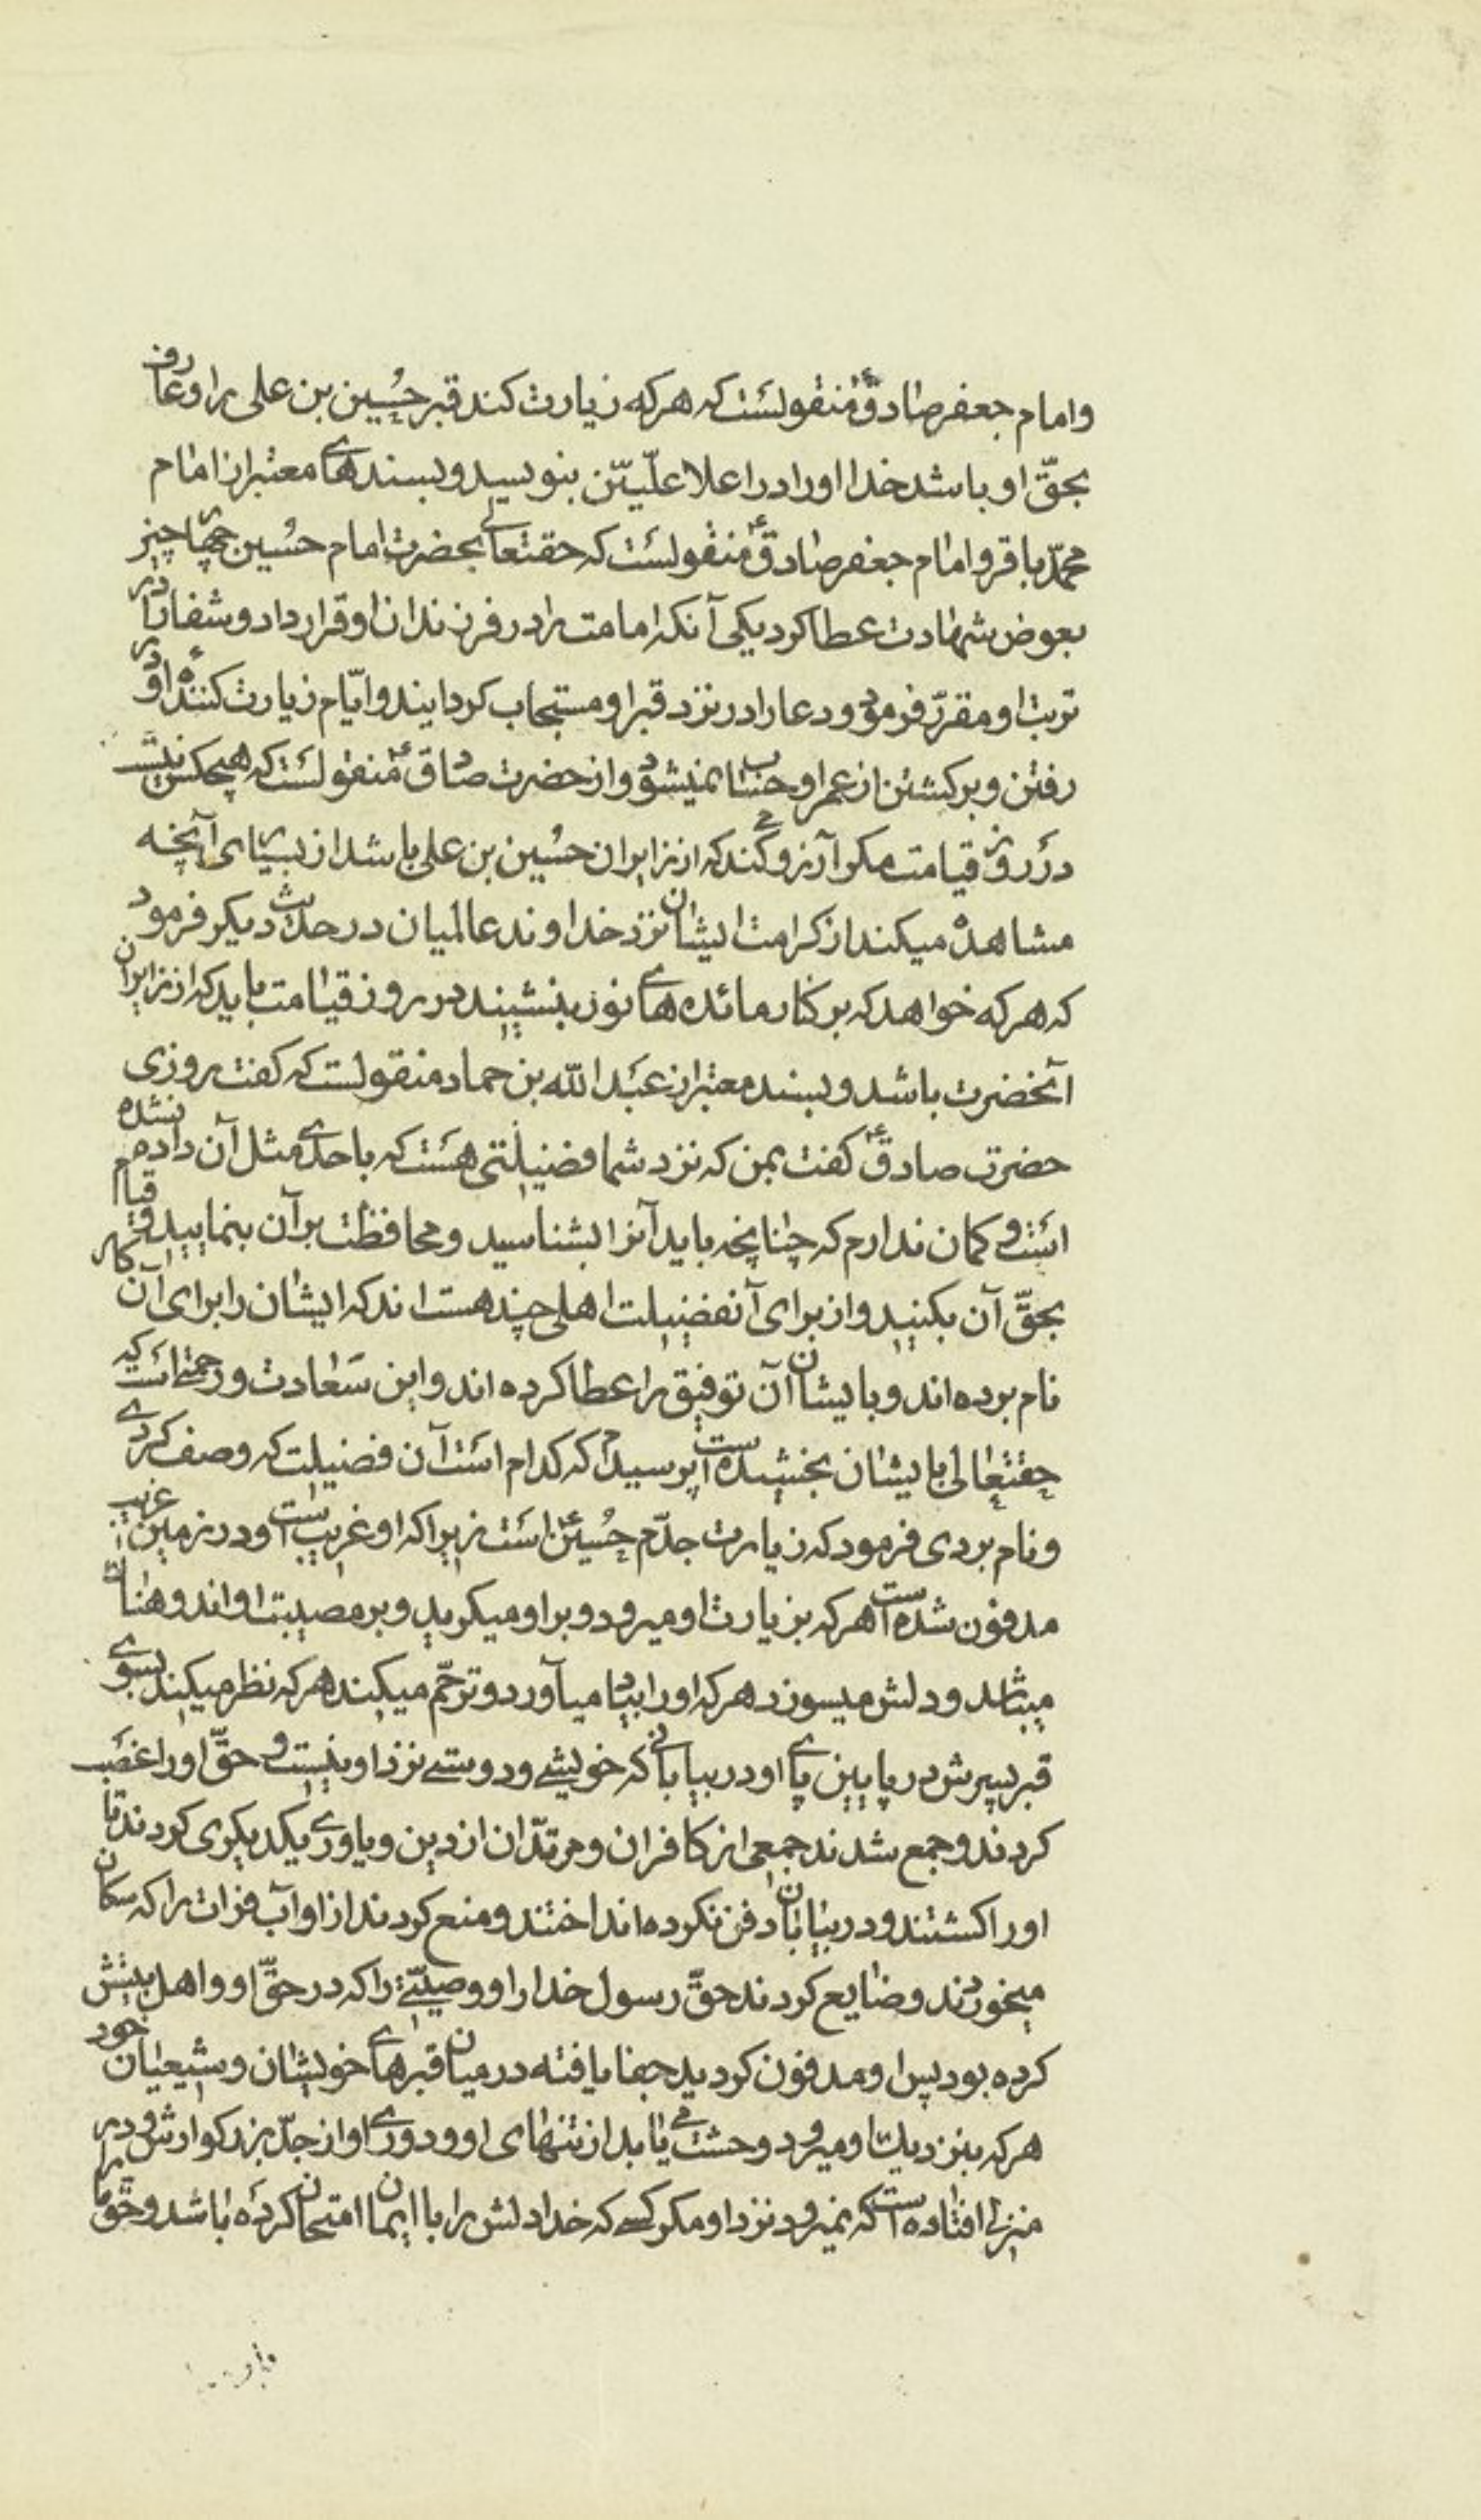 وامام جعفر صادقؑ منقولست که هرکه زیارت کند قبر حُسین بن علی را و عارف
بحقّ او باشد خدا اورا در اعلا علّییّن بنویسید و بسندهای معتبر از امام
محمّد باقر و امام جعفر صادقؑ منقولست که حقتعالی بحضرت امام حسین چهار چیز
بعوض شهادت عطا کرد یکی آنکه امامت را در فرزندان او قرار داد و شفا را در
تربت او مقرّر فرمود و دعا را در نزد قبر او مستجاب کردایند و ایّام زیارت کننده او در
رفتن و برکشتن از عمر او حساب نمیشود و از حضرت صادقؑ منقولست که هیچکس نیست
در روز قیامت مکر آرزو میکند که از زایران حُسین بن علی باشد از بسیاری آنچه
مشاهده میکند از کرامت ایشان نزد خداوند عالمیان در حدیث دیکر فرمود
که هرکه خواهد که بر کنار مائده های نور بنشیند در روز قیامت باید که از زایران
آنحضرت باشد و بسند معتبر از عبَد الله بن حماد منقولست که کفت روزی
حضرت صادقؑ کفت بمن که نزد شما فضیلتی هسَت که باحدی مثل آن داده نشده
اسَت و کمان ندارم که چنانچه باید آنرا بشناسید و محافظت بر آن بنمایید و قیام
بحقّ آن بکنید و از برای آنفضیلت اهلی چند هست اند که ایشان را برای آن کار
نام برده اند و بایشان آن توفیق را عطا کرده اند و این سَعادت و رحمتی است که
حقتعالی بایشان بخشیده است پرسیدم که کدام اسَت آن فضیلت که وصف کردی
و نام بردی فرمود که زیارت جدّم حُسینؑ اسَت زیرا که او غریب است و در زمین غریب
مدفون شده است هرکه بزیارت او میرود و بر او میکرید و بر مصیبت او اندوهناک
میباشد و دلش میسوزد هرکه اورا بیاد میآورد و ترحّم میکند هرکه نظر میکند بسوی
قبر پسرش در پایین پای او در بیابانی که خویشی و دوستی نزد او نیست و حقّ اورا غصَب
کردند و جمع شدند جمعی از کافران و مرتدّان از دین و یاوری یکدیکری کردند تا
اورا کشتند و در بیابان دفن نکرده انداختند و منع کردند از او آب فرات را که سکان
میخوردند و ضایع کردند حقّ رسول خدا را و وصیتّی را که در حقّ او و اهل بیتش
کرده بود پس او مدفون کردید جفا یافته در میان قبرهای خویشان و شیعیان خود
هرکه بنزدیک او میرود وحشت می یابد از تنهای او و دوری او از جدّ بزرکوارش و در
منزلی افتاده است که نمیرود نزد او مکر کسی که خدا دلش را با ایمان امتحان کرده باشد و حقّ ما را